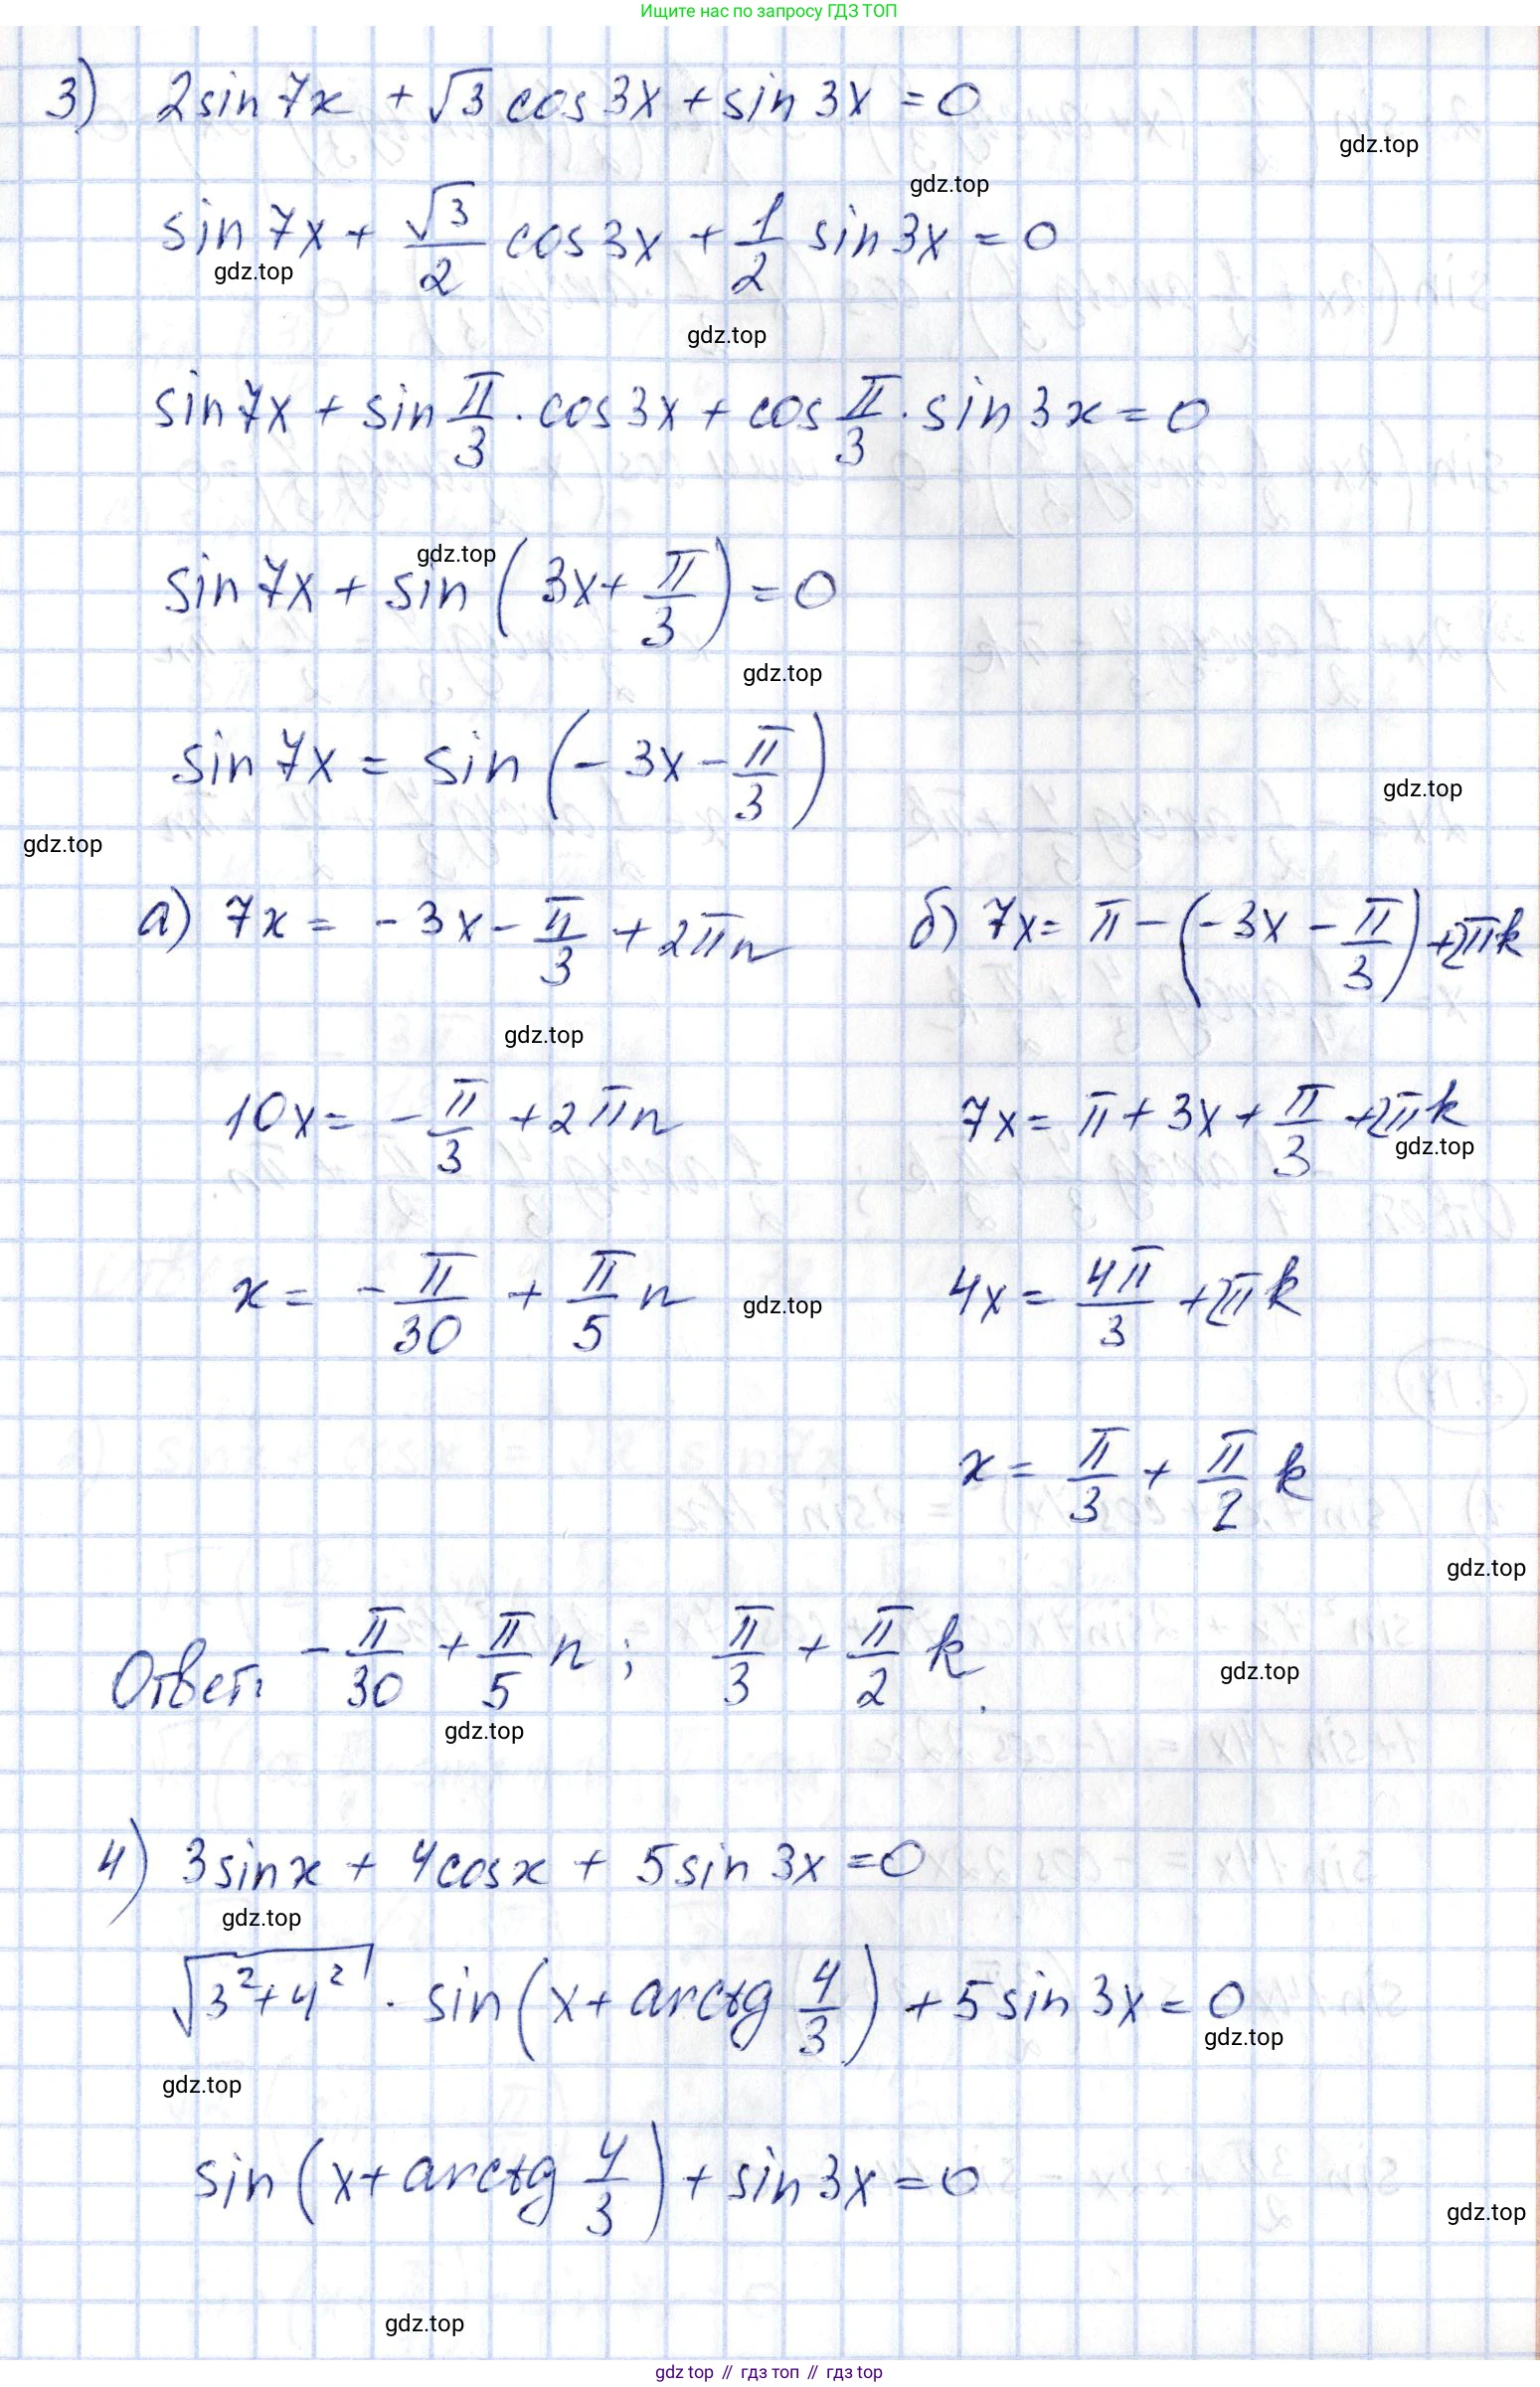 Ищите нас по запросу ГДЗ ТОП
3) 2sin 7x + √3 cos 3x + sin 3x = 0
gdz.top
gdz.top
sin 7x + √3/2 cos 3x + 1/2 sin 3x = 0
gdz.top
gdz.top
sin 7x + sin π/3 · cos 3x + cos π/3 · sin 3x = 0
gdz.top
sin 7x + sin (3x + π/3) = 0
gdz.top
sin 7x = sin (- 3x - π/3)
gdz.top
gdz.top
а) 7x = - 3x - π/3 + 2πn б) 7x = π - (- 3x - π/3) + 2πk
gdz.top
10x = - π/3 + 2πn 7x = π + 3x + π/3 + 2πk
gdz.top
x = - π/30 + π/5 n 4x = 4π/3 + 2πk
gdz.top
x = π/3 + π/2 k
gdz.top
Ответ: - π/30 + π/5 n ; π/3 + π/2 k.
gdz.top
gdz.top
4) 3sin x + 4cos x + 5sin 3x = 0
gdz.top
√(3² + 4²) · sin (x + arctg 4/3) + 5 sin 3x = 0
gdz.top
gdz.top
sin (x + arctg 4/3) + sin 3x = 0
gdz.top
gdz.top
gdz top // гдз топ // гдз top